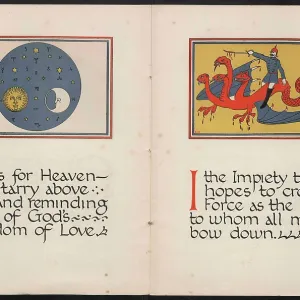 s for Heaven—
tarry above
And reminding
of God's
dom of Love.
I the Impiety t
hopes to cre
Force as the
to whom all m
bow down.